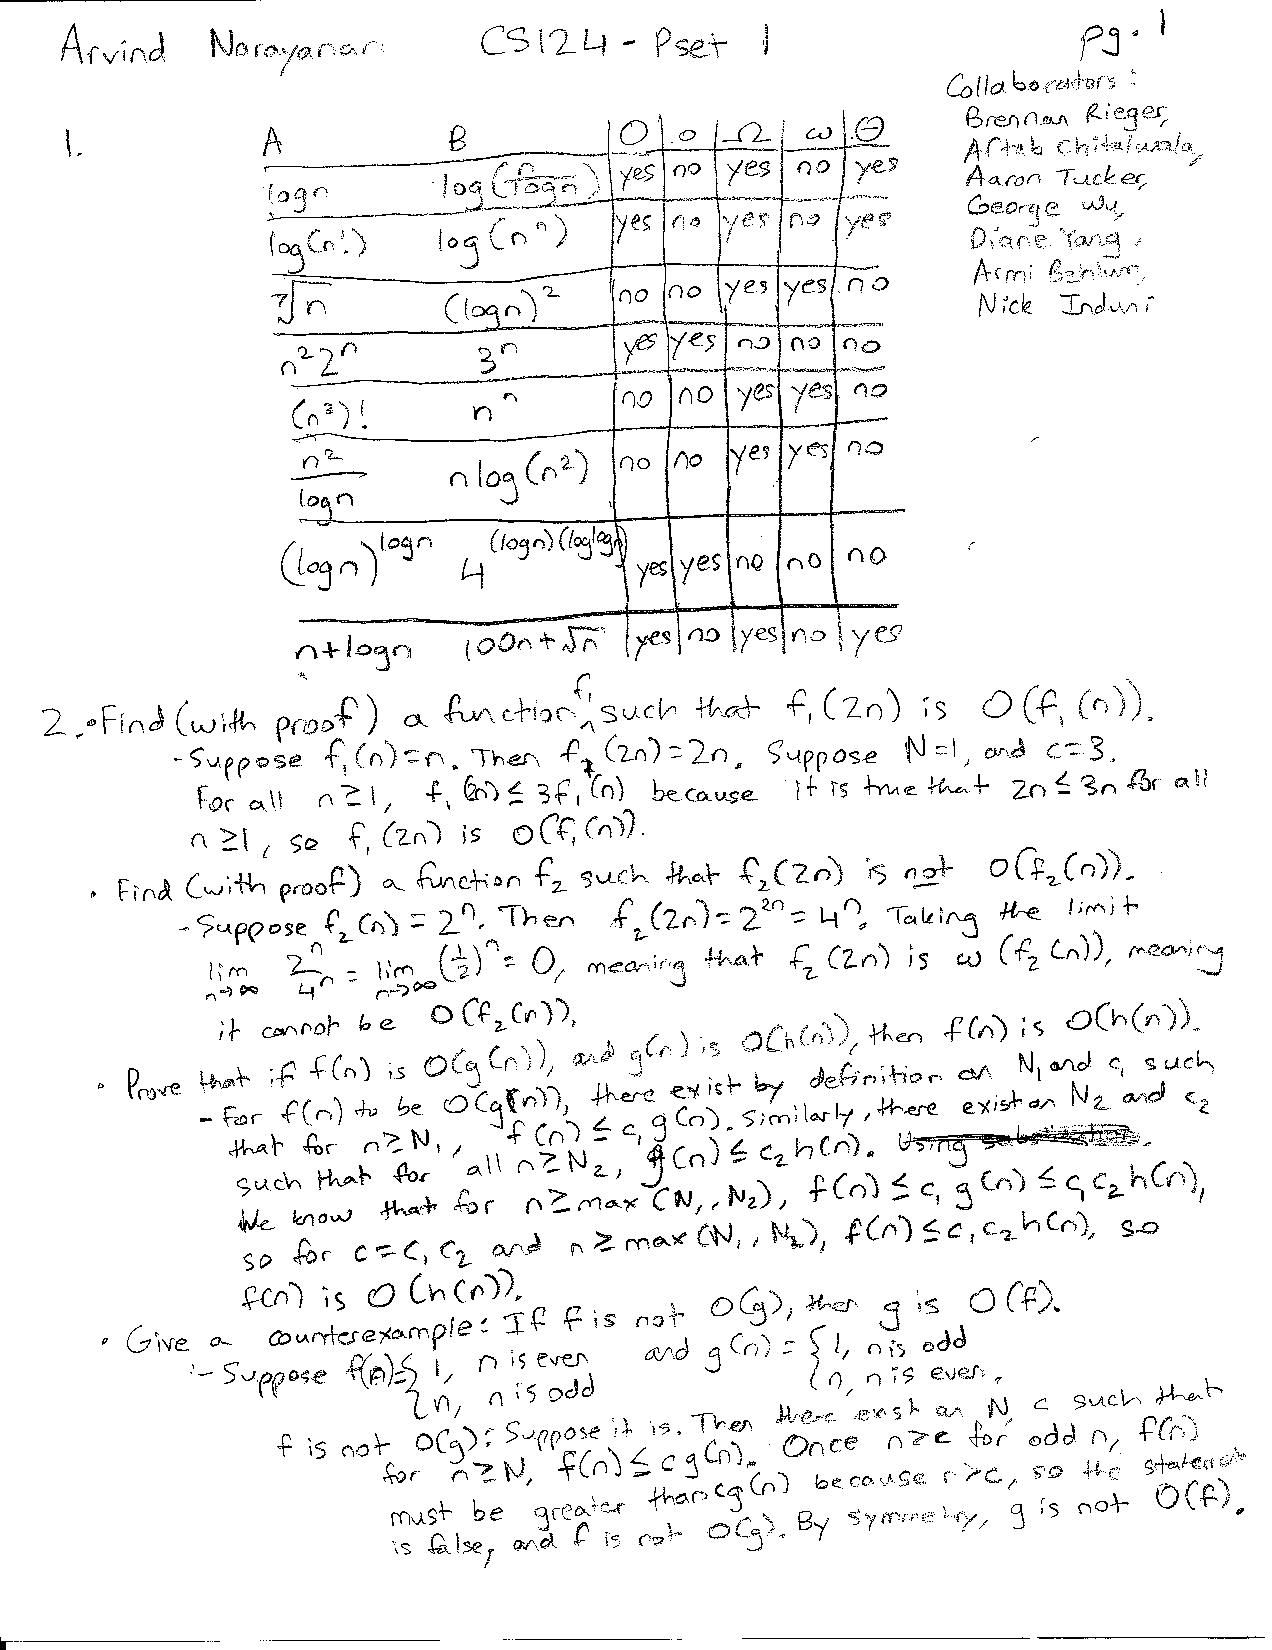 Arvind Narayanan CS124 - Pset 1 pg. 1
Collaborators:
Brennan Rieger,
Aftab Chitalwala,
Aaron Tucker,
George Wu,
Diane Yang,
Nick Induni
1. A B O o Ω ω Θ
log n log( ) yes no yes no yes
log(n!) log(n^n) yes no yes no yes
∛n (log n)^2 no no yes yes no
n^2 2^n 3^n yes yes no no no
(n^2)! n^n no no yes yes no
n^2/log n n log(n^2) no no yes yes no
(log n)^log n 4^(log n)(log log n) yes yes no no no
n+log n 100n+√n yes no yes no yes
2. • Find (with proof) a function f₁ such that f₁(2n) is O(f₁(n)).
- Suppose f₁(n)=n. Then f₁(2n)=2n. Suppose N=1, and c=3.
For all n≥1, f₁(2n) ≤ 3f₁(n) because it is true that 2n ≤ 3n for all
n ≥1, so f₁(2n) is O(f₁(n)).
• Find (with proof) a function f₂ such that f₂(2n) is not O(f₂(n)).
- Suppose f₂(n) = 2^n. Then f₂(2n)=2^2n = 4^n. Taking the limit
lim n→∞ 2^n/4^n = lim n→∞ (1/2)^n = 0, meaning that f₂(2n) is ω(f₂(n)), meaning
it cannot be O(f₂(n)).
• Prove that if f(n) is O(g(n)), and g(n) is O(h(n)), then f(n) is O(h(n)).
- For f(n) to be O(g(n)), there exist by definition an N₁ and c₁ such
that for n≥N₁, f(n) ≤ c₁g(n). Similarly, there exist an N₂ and c₂
such that for all n≥N₂, g(n) ≤ c₂h(n).
We know that for n≥max(N₁,N₂), f(n) ≤ c₁g(n) ≤ c₁c₂h(n),
so for c=c₁c₂ and n≥max(N₁,N₂), f(n) ≤ c₁c₂h(n), so
f(n) is O(h(n)).
• Give a counterexample: If f is not O(g), then g is O(f).
- Suppose f(n)={1, n is even and g(n)={1, n is odd
n, n is odd n, n is even.
f is not O(g): Suppose it is. Then there exist an N, c such that
for n≥N, f(n) ≤ cg(n). Once n>c for odd n, f(n)
must be greater than cg(n) because n>c, so the statement
is false, and f is not O(g). By symmetry, g is not O(f).